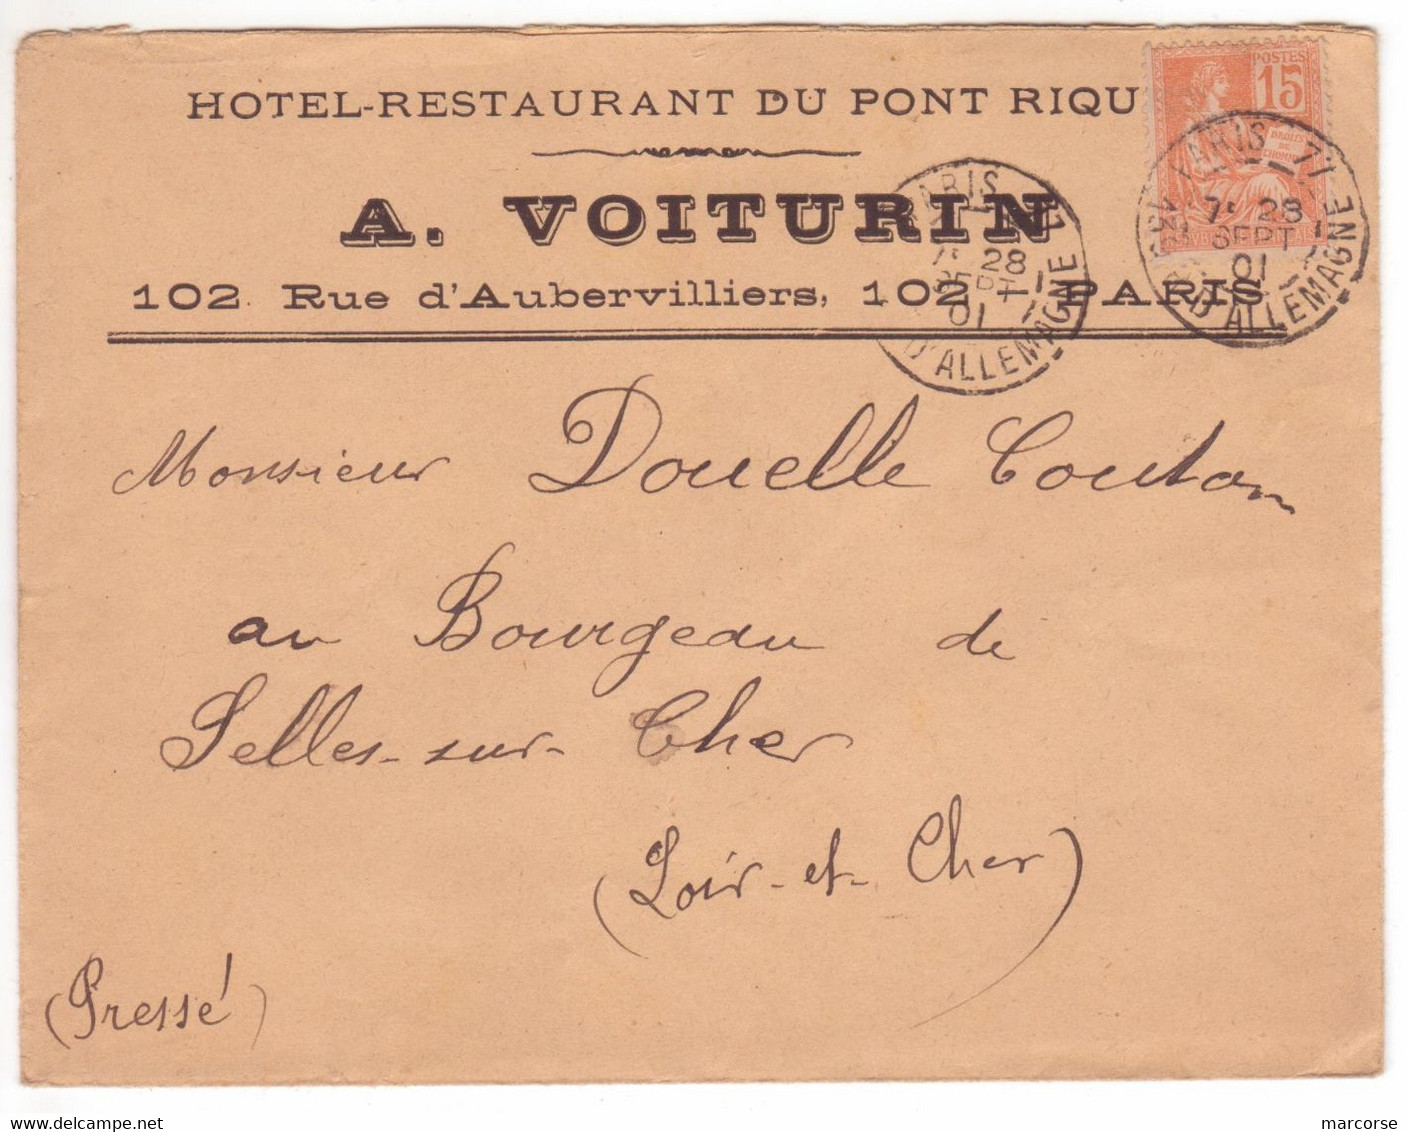 HOTEL-RESTAURANT DU PONT RIQU
A. VOITURIN
102. Rue d'Aubervilliers, 102 _ PARIS
POSTES
15
DROITS
DE
L'HOMME
PARIS 71
7E 28
SEPT
01
D'ALLEMAGNE
PARIS 71
7E 28
SEPT
01
D'ALLEMAGNE
Monsieur Douelle Couton
au Bourgeau de
Selles-sur-Cher
(Loir-et-Cher)
(Pressé)
www.delcampe.net
marcorse